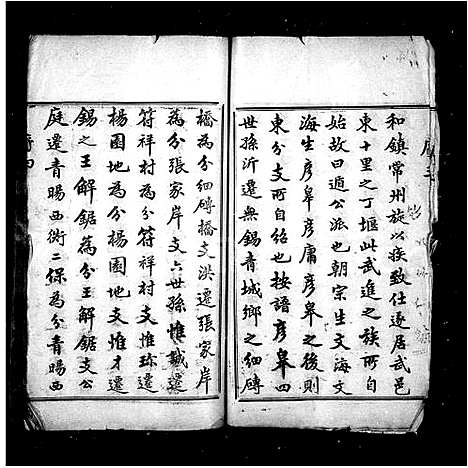 和鎮常州旋以疾致仕遂居武邑
東十里之丁堰此武進之族所自
始故曰遁公派也朝宗生文海文
海生彥皋彥庸彥皋之後則
東分支所自始也按譜彥皋四
世孫沂遷無錫青城鄉之細磚
橋為分細磚橋支洪遷張家岸
為分張家岸支六世孫惟誠遷
符祥村為分符祥村支惟珍遷
楊園地為分楊園地支惟才遷
錫之王解鋸為分王解鋸支公
庭遷青暘西街二保為分青暘西